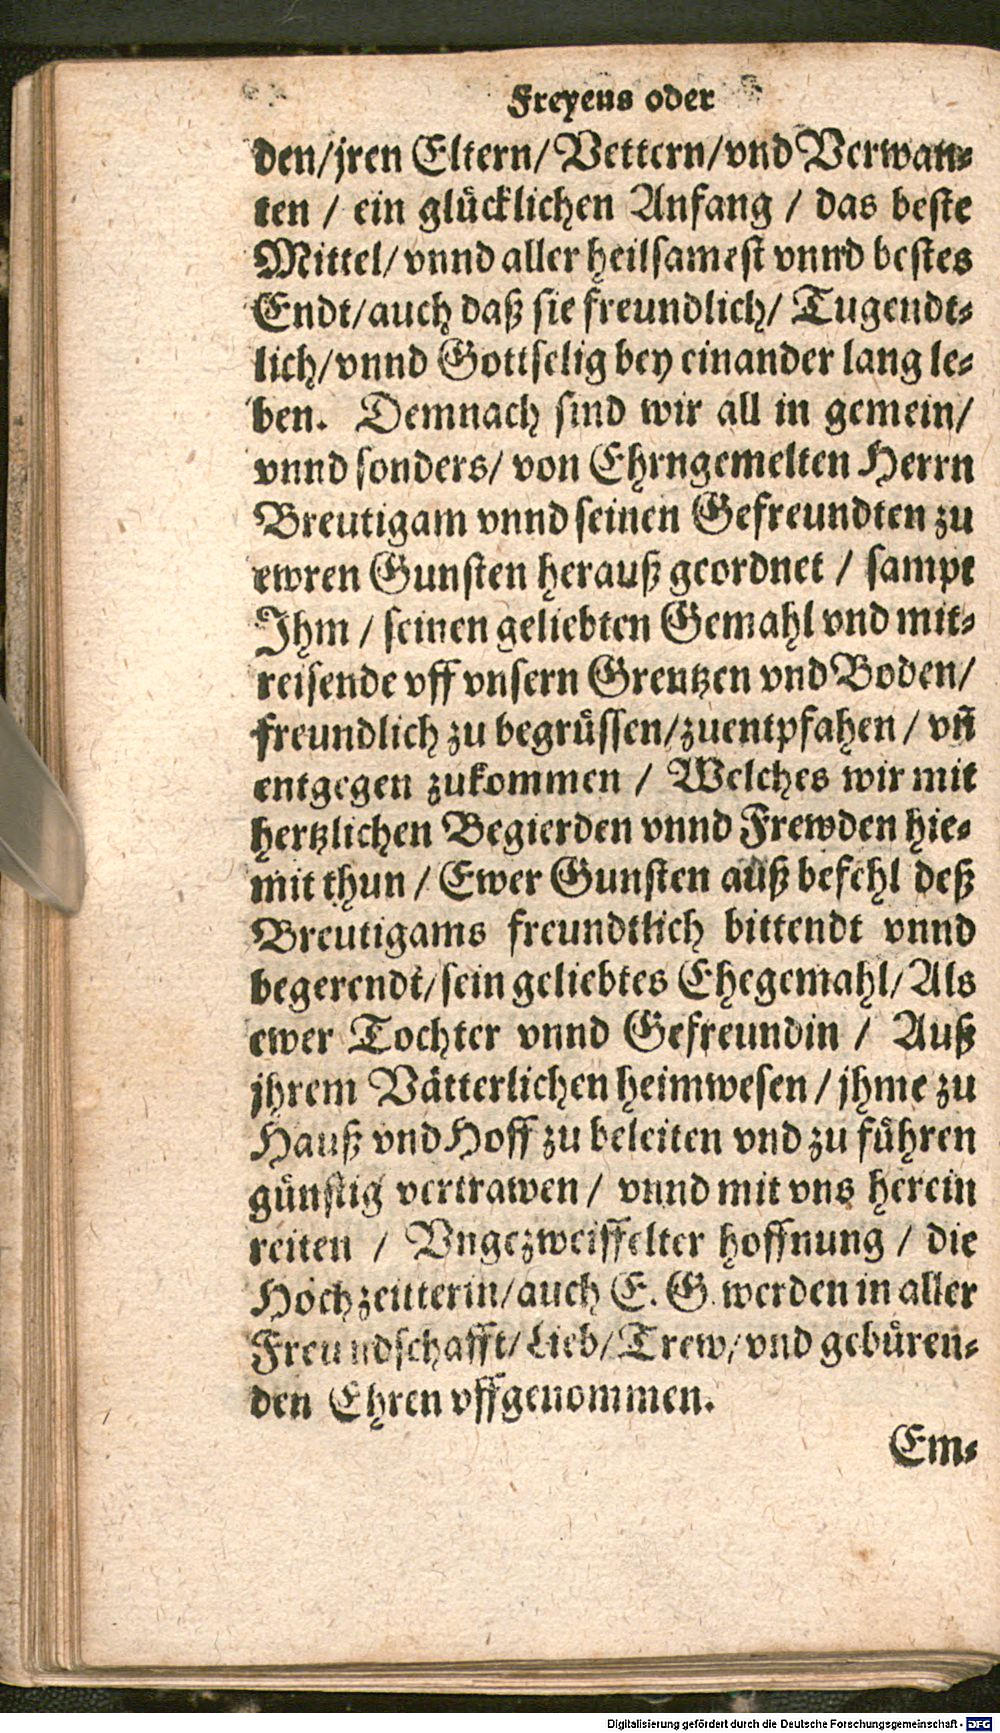 Freyens oder
den/jren Eltern/ Vettern/vnd Verwan-
ten / ein glücklichen Anfang / das beste
Mittel/ vnnd aller heilsamest vnnd bestes
Endt/auch daß sie freundlich/ Tugendt-
lich/vnnd Gottselig bey einander lang le-
ben. Demnach sind wir all in gemein/
vnnd sonders/ von Ehrngemelten Herrn
Breutigam vnnd seinen Gefreundten zu
ewren Gunsten herauß geordnet / sampt
Ihm / seinen geliebten Gemahl vnd mit-
reisende vff vnsern Grentzen vnd Boden/
freundlich zu begrüssen/zuentpfahen / vñ
entgegen zukommen / Welches wir mit
hertzlichen Begierden vnnd Frewden hie-
mit thun / Ewer Gunsten auß befehl deß
Breutigams freundtlich bittendt vnnd
begerendt/sein geliebtes Ehegemahl/ Als
ewer Tochter vnnd Gefreundin / Auß
jhrem Vätterlichen heimwesen / jhme zu
Hauß vnd Hoff zu beleiten vnd zu führen
günstig vertrawen / vnnd mit vns herein
reiten / Vngezweiffelter hoffnung / die
Hochzeitterin/auch E. G. werden in aller
Freundschafft/ Lieb/ Trew/ vnd gebüren-
den Ehren vffgenommen.
Em-
Digitalisierung gefördert durch die Deutsche Forschungsgemeinschaft - DFG